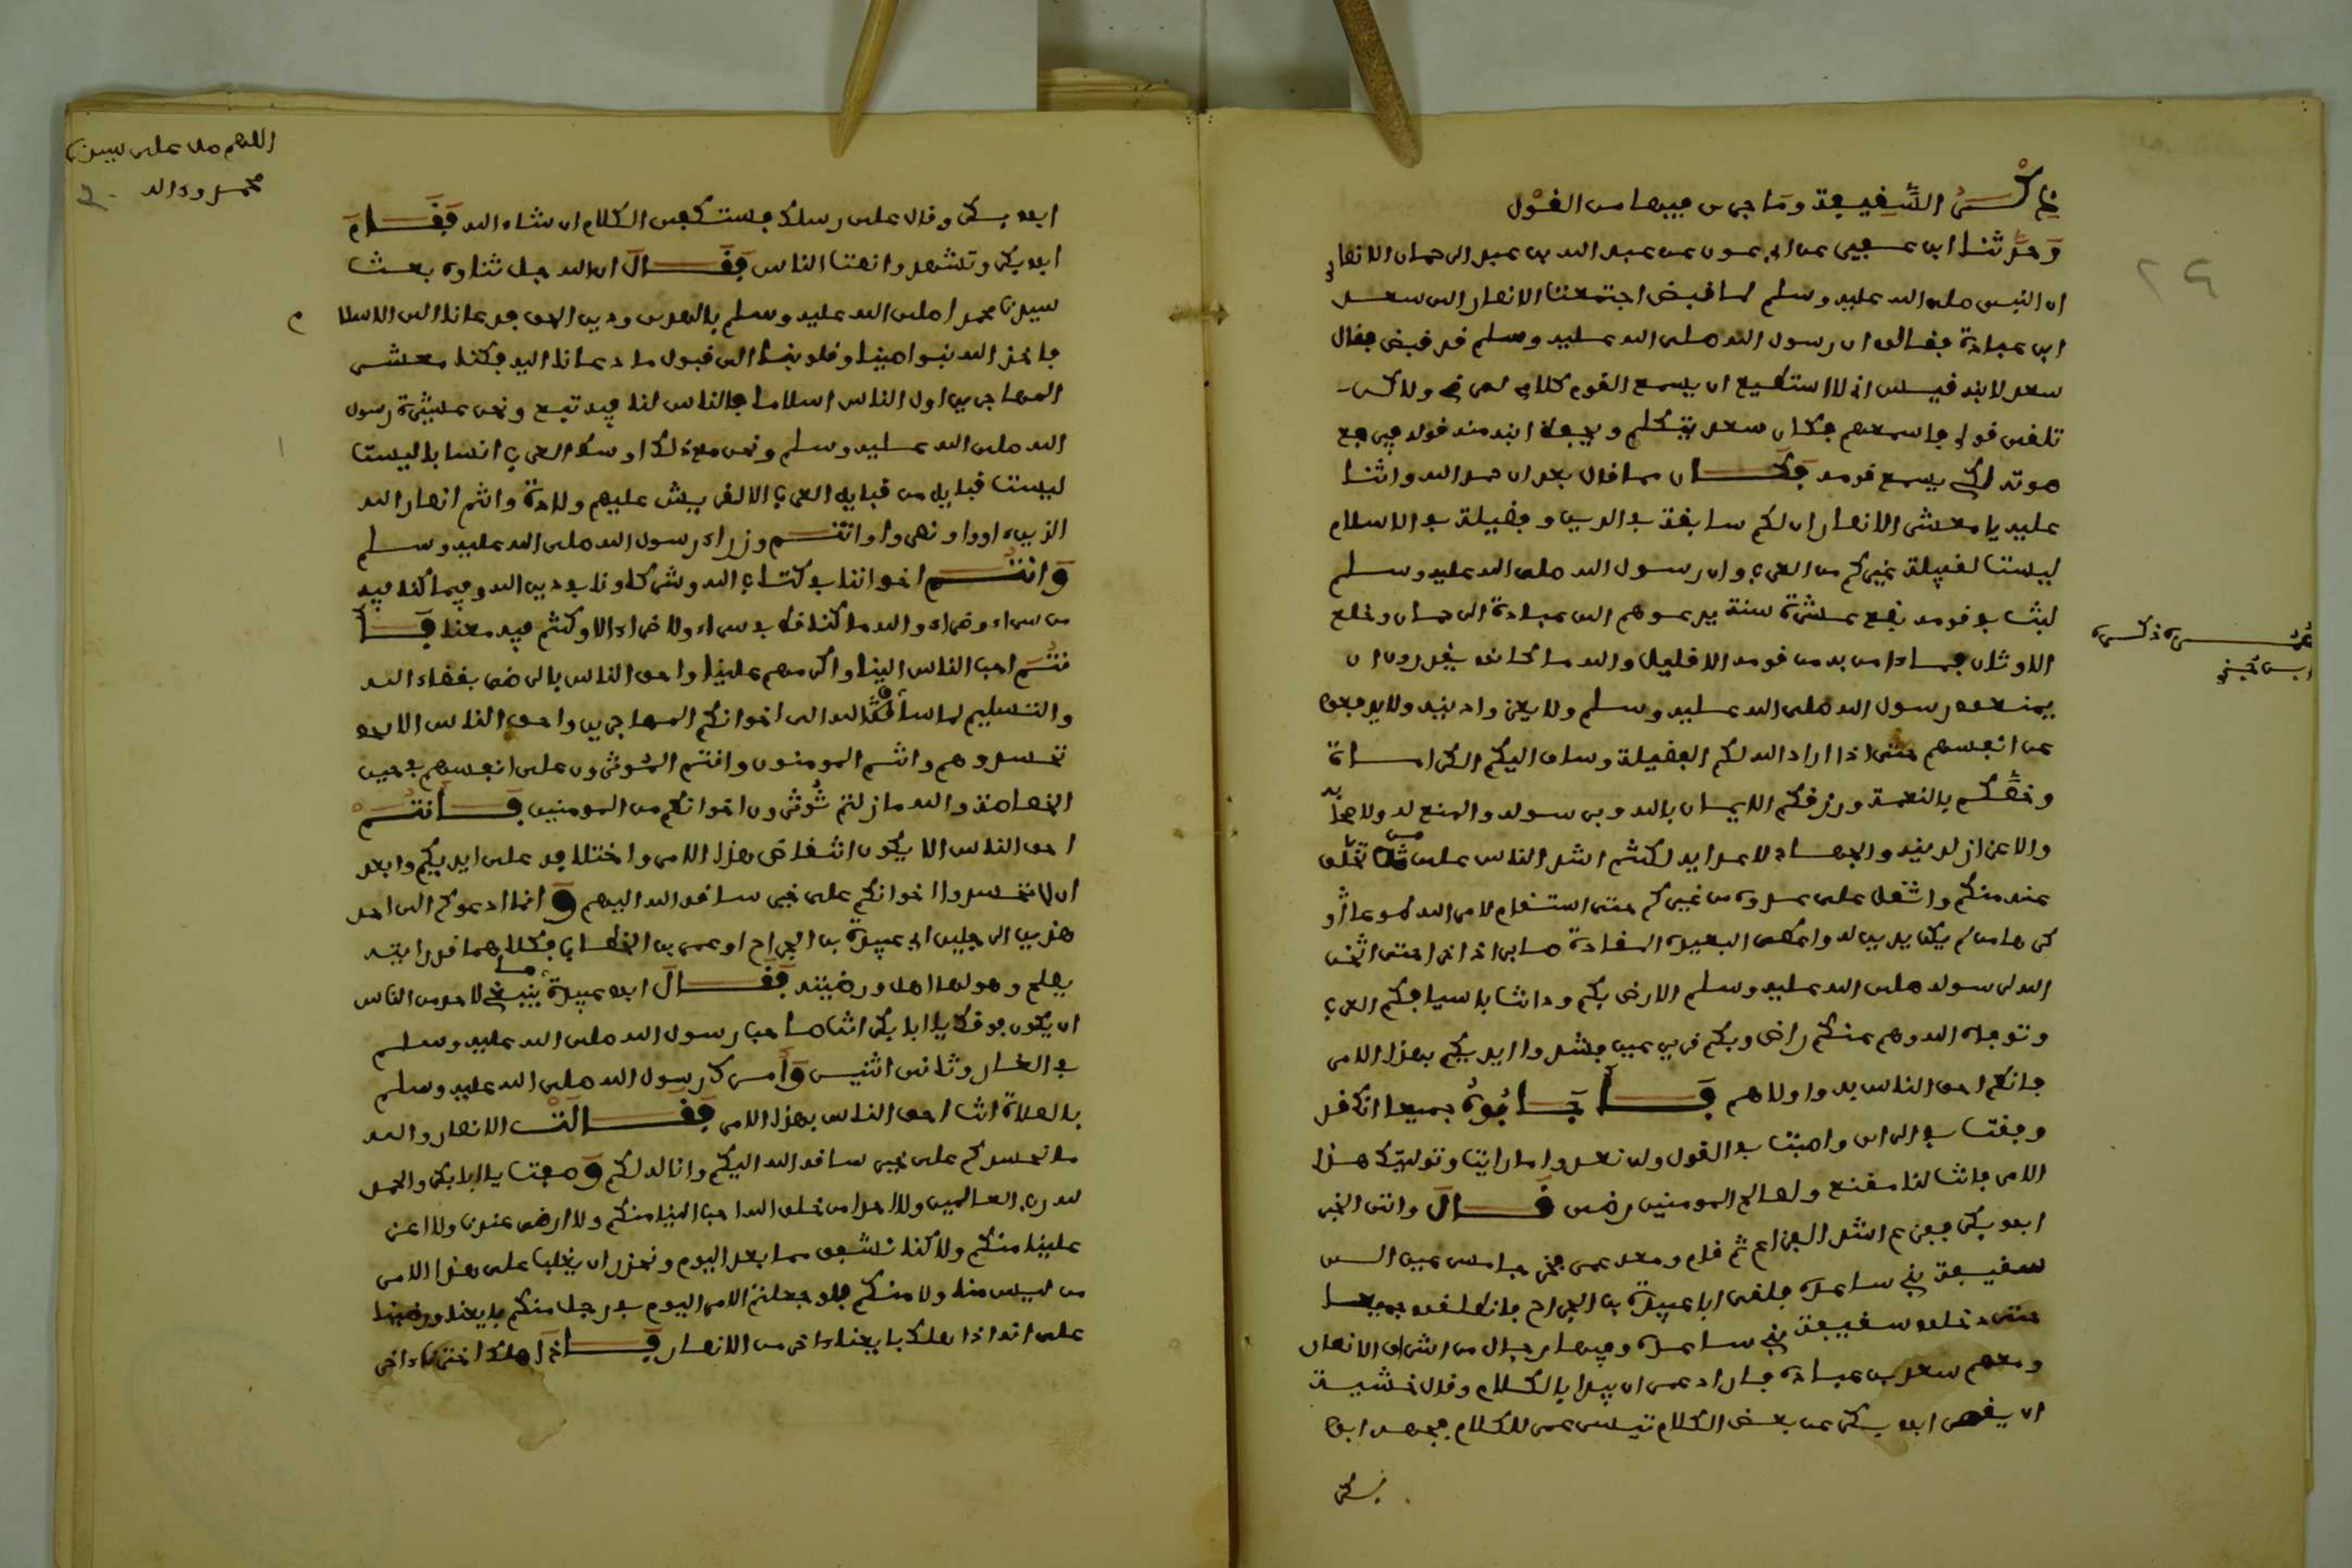 ذكر السقيفة وما جرى فيها من القول
وحدثنا ابن عفير عن ابي عون عن عبد الله بن عبد الرحمان الانصاري
ان النبي صلى الله عليه وسلم لما قبض اجتمعت الانصار الى سعد
ابن عبادة فقالوا ان رسول الله صلى الله عليه وسلم قد قبض فقال
سعد لابنه قيس اني لا استطيع ان يسمع القوم كلامي لمرضي ولاكن
تلقى قولي فاسمعهم فكان سعد يتكلم ويحفظ ابنه منه قوله فيرفع
صوته لكي يسمع قومه فكان مما قال بعد ان حمد الله واثنا
عليه يا معشر الانصار ان لكم سابقة في الدين وفضيلة في الاسلام
ليست لقبيلة غيركم من العرب وان رسول الله صلى الله عليه وسلم
لبث في قومه بضع عشرة سنة يدعوهم الى عبادة الرحمان وخلع
الاوثان فما ءامن به من قومه الا قليل والله ما كانوا يقدرون ان
يمنعوا رسول الله صلى الله عليه وسلم ولا يعزوا دينه ولا يدفعوا
عن انفسهم حتى اذا اراد الله لكم الفضيلة وساق اليكم الكرامة
وخصكم بالنعمة ورزقكم الايمان بالله وبرسوله والمنع له ولاصحابه
والاعزاز لدينه والجهاد لاعدايه لكنتم اشد الناس على من تخلف
عنه منكم واثقل على عدوه من غيركم حتى استقام لامر الله طوعا او
كرها من لم يكن يدين له واعطى البعيد المقادة صابرا داخرا حتى اثخن
الله لرسوله صلى الله عليه وسلم الارض بكم ودانت باسيافكم العرب
وتوفاه الله وهو عنكم راض وبكم قرير عين فشدوا ايديكم بهذا الامر
فانكم احق الناس به واولاهم فأجابوه جميعا ان قد
وفقت في الراي واصبت في القول ولن نعدوا ما رايت وتوليتك هذا
الامر فانت لنا مقنع ولصالح المومنين رضى قال واتى الخبر
ابو بكر ففزع اشد الفزع ثم قام ومعه عمر فخرجا مسرعين الى
سقيفة بني ساعدة فلقي ابا عبيدة بن الجراح فانطلقوا جميعا
حتى دخلوا سقيفة بني ساعدة وفيها رجال من اشراف الانصار
ومعهم سعد بن عبادة فاراد عمر ان يبدا بالكلام وقال خشية
ان يقصر ابو بكر عن بعض الكلام تيسر عمر للكلام فجهد ابو
بكر
ابو بكر وقال على رسلك فستكفى الكلام ان شاء الله فقام
ابو بكر وتشهد وانصت الناس فقال ان الله جل ثناؤه بعث
سيدنا محمدا صلى الله عليه وسلم بالهدى ودين الحق فدعانا الى الاسلام
فاخذ الله بنواصينا وقلوبنا الى قبول ما دعانا اليه فكنا معشر
المهاجرين اول الناس اسلاما والناس لنا فيه تبع ونحن عشيرة رسول
الله صلى الله عليه وسلم ونحن مع ذلك اوسط العرب انسابا ليست
ليست قبايل من قبايل العرب الا لقريش عليهم ولادة وانتم انصار الله
الذين ءاووا ونصروا وانتم وزراء رسول الله صلى الله عليه وسلم
وانتم اخواننا في كتاب الله وشركاؤنا في دين الله وفيما كنا فيه
من سراء وضراء والله ما كنا قط في سراء ولا ضراء الا وكنتم فيه معنا فأ
نتم احب الناس الينا واكرمهم علينا واحق الناس بالرضى بقضاء الله
والتسليم لما ساق الله الى اخوانكم المهاجرين واحق الناس الا
تحسدوهم وانتم المومنون وانتم الموثرون على انفسهم في حين
الخصاصة والله ما زلتم توثرون اخوانكم من المومنين فأنتم
احق الناس الا يكون انتقاض هذا الامر واختلافه على ايديكم وابعد
ان لا تحسدوا اخوانكم على خير ساقه الله اليهم وانا ادعوكم الى احد
هذين الرجلين ابي عبيدة بن الجراح او عمر بن الخطاب فكلاهما قد رايته
يصلح وهو لها اهل ورضيته فقال ابو عبيدة ما ينبغي لاحد من الناس
ان يكون فوقك يا ابا بكر انت صاحب رسول الله صلى الله عليه وسلم
في الغار وثاني اثنين وأمرك رسول الله صلى الله عليه وسلم
بالصلاة انت احق الناس بهذا الامر فقالت الانصار والله
ما نحسدكم على خير ساقه الله اليكم وانا لكم وصفت يا ابا بكر والحمد
لله رب العالمين ولا احدا من خلق الله احب الينا منكم ولا ارضى عندنا ولا اعز
علينا منكم ولاكنا نشفق مما بعد اليوم ونحذر ان يغلب على هذا الامر
من ليس منا ولا منكم فلو جعلتم الامر اليوم في رجل منكم بايعنا ورضينا
على انه اذا هلك بايعنا ءاخر من الانصار فاذا هلك اخترنا ءاخر
اللهم صل على سيدنا
محمد وءاله